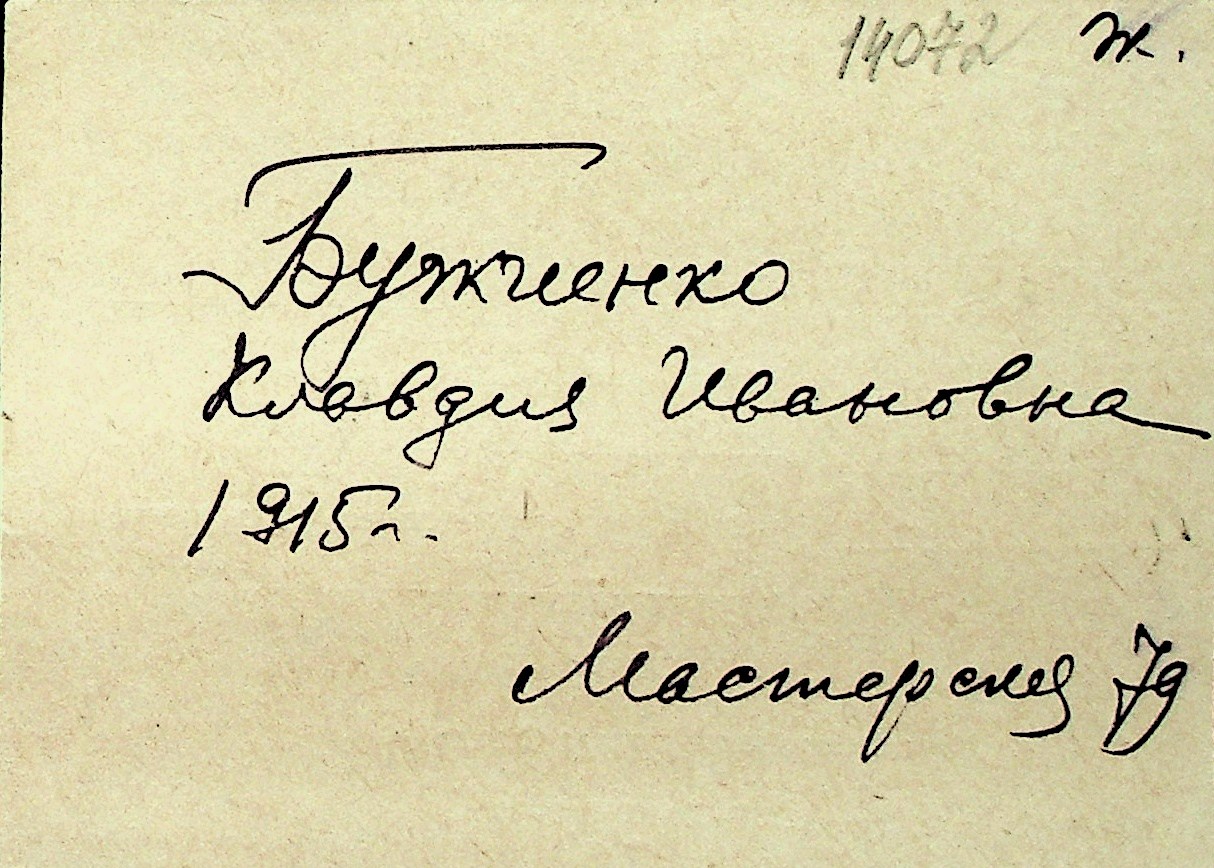 14072 ж.
Бужиенко
Клавдия Ивановна
1915г.
Мастерская 7д